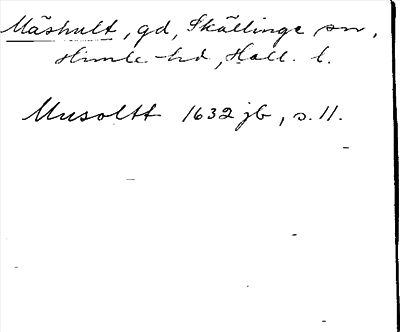 Mäshult, gd, Skällinge sn,
Himle hd, Hall. l.
Musoltt 1632 jb, s. 11.